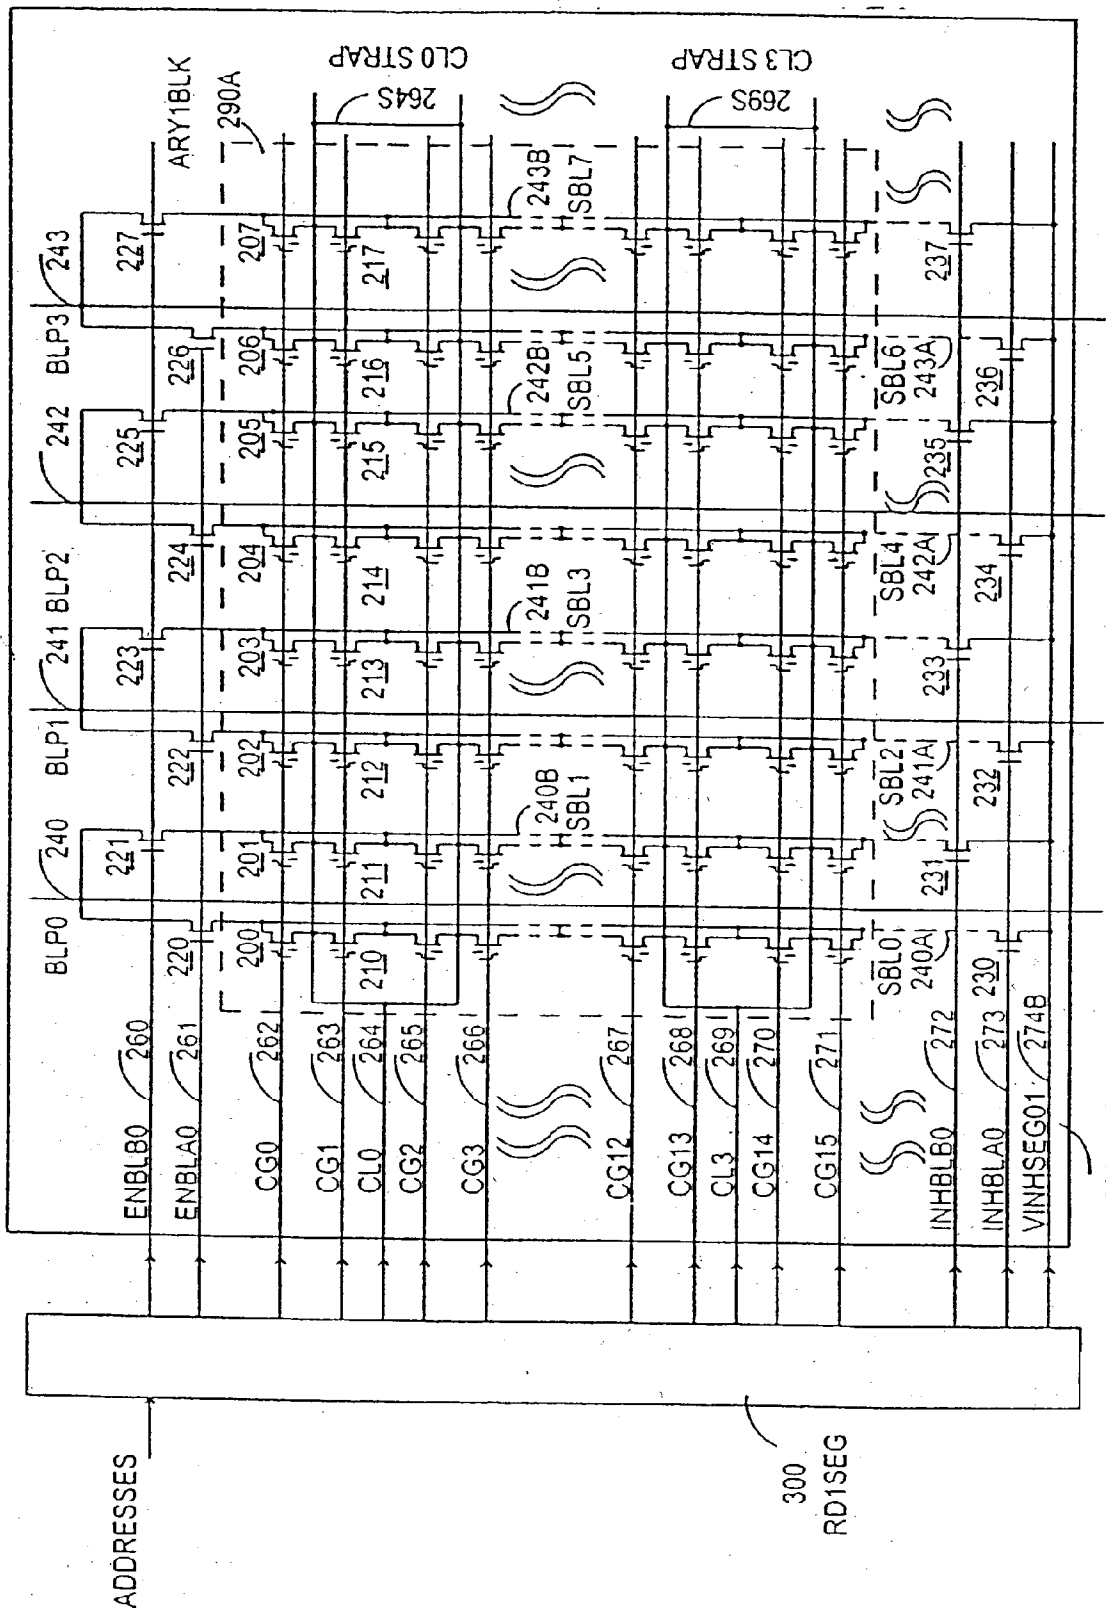 ADDRESSES
300
RD1SEG
ENBLB0 260
ENBLA0 261
CG0 262
CG1 263
CL0 264
CG2 265
CG3 266
CG12 267
CG13 268
CL3 269
CG14 270
CG15 271
INHBLB0 272
INHBLA0 273
VINHSEG01 274B
BLP0 240
BLP1 241
BLP2 242
BLP3 243
ARY1BLK
290A
220 221 222 223 224 225 226 227
200 201 202 203 204 205 206 207
210 211 212 213 214 215 216 217
CL0 STRAP
264S
240B
SBL1
241B
SBL3
242B
SBL5
243B
SBL7
CL3 STRAP
269S
SBL0
240A
SBL2
241A
SBL4
242A
SBL6
243A
230 231 232 233 234 235 236 237